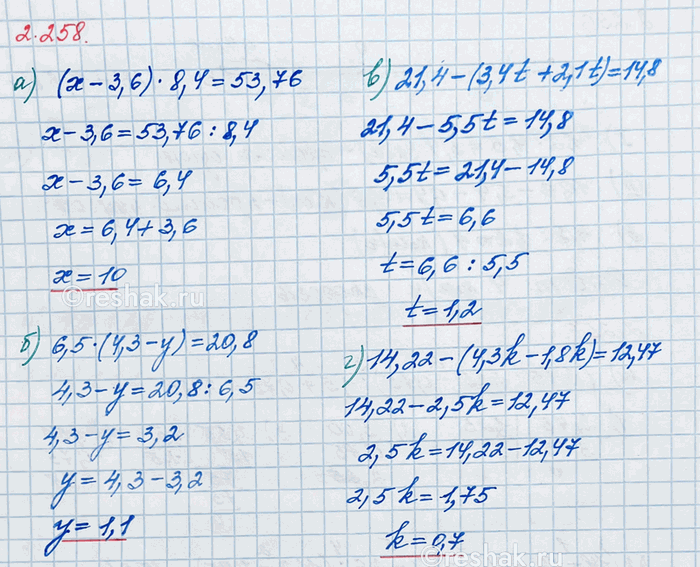 2.258.
а) (x – 3,6) · 8,4 = 53,76
x – 3,6 = 53,76 : 8,4
x – 3,6 = 6,4
x = 6,4 + 3,6
x = 10
©reshak.ru
б) 6,5 · (4,3 – y) = 20,8
4,3 – y = 20,8 : 6,5
4,3 – y = 3,2
y = 4,3 – 3,2
y = 1,1
в) 21,4 – (3,4t + 2,1t) = 14,8
21,4 – 5,5t = 14,8
5,5t = 21,4 – 14,8
5,5t = 6,6
t = 6,6 : 5,5
t = 1,2
г) 14,22 – (4,3k – 1,8k) = 12,47
14,22 – 2,5k = 12,47
2,5k = 14,22 – 12,47
2,5k = 1,75
k = 0,7
©reshak.ru